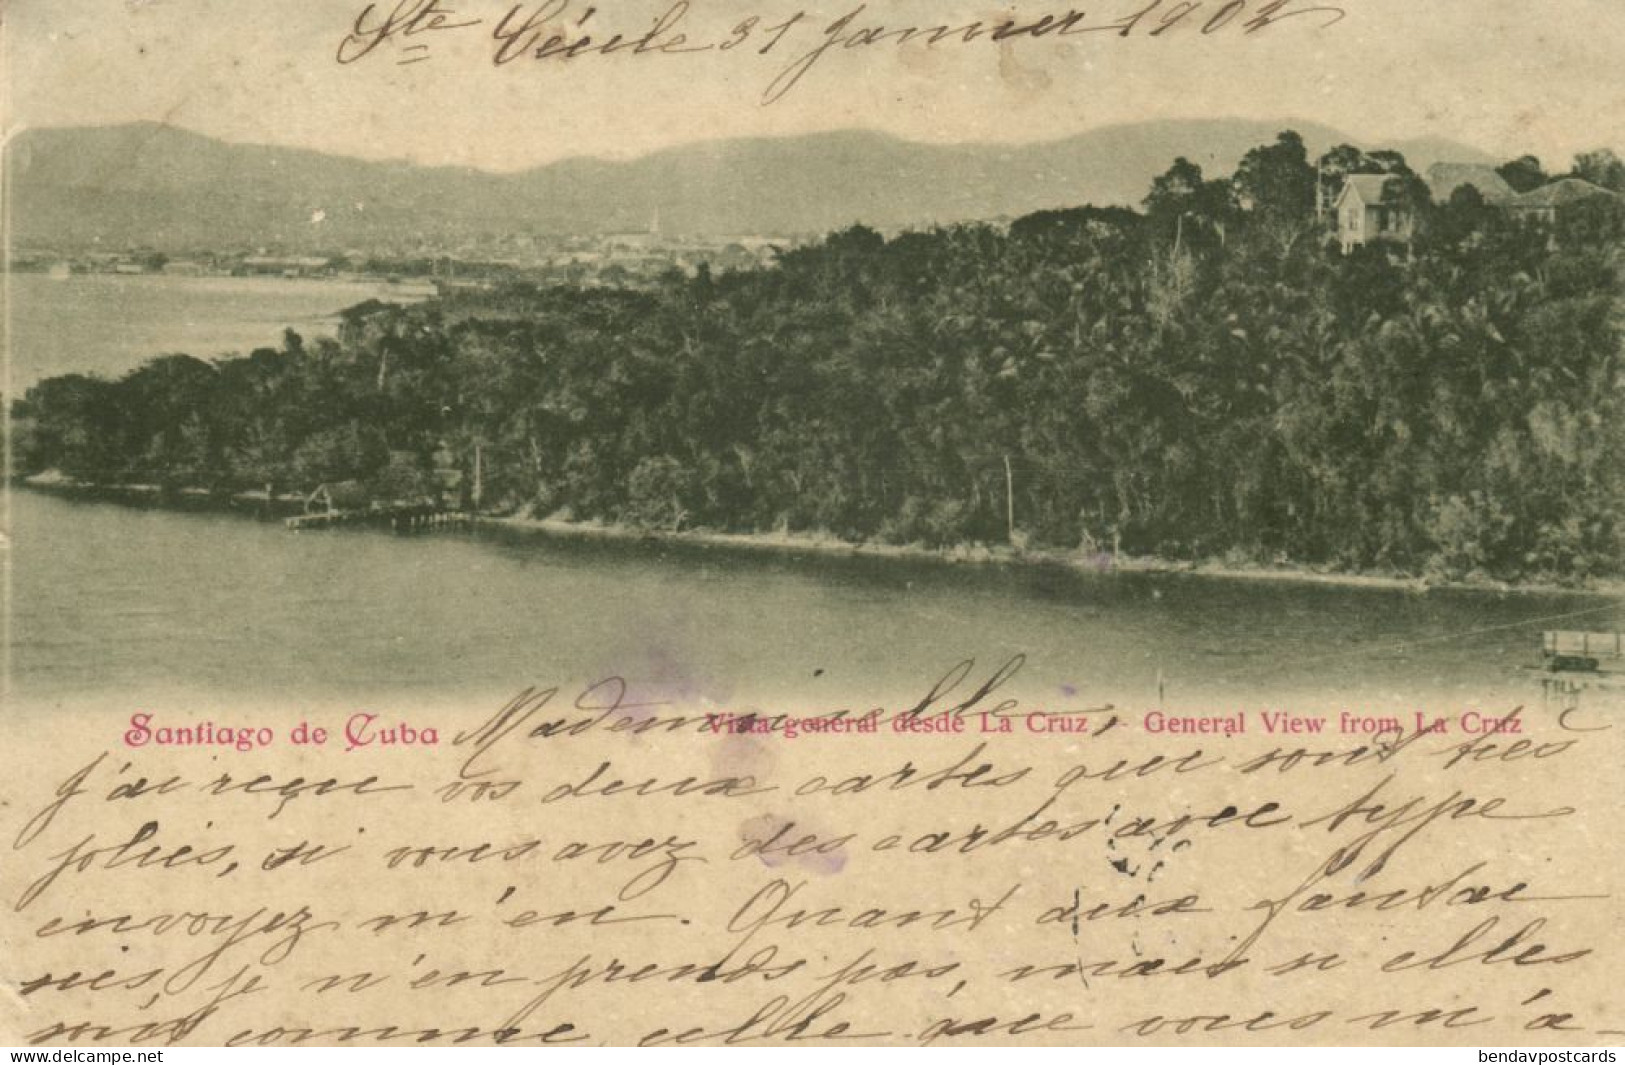 Ste Cécile 31 Janvier 1902
Santiago de Cuba
Vista general desde La Cruz - General View from La Cruz
Mademoiselle,
J'ai reçu vos deux cartes qui sont très
jolies, si vous avez des cartes avec type
envoyez m'en. Quant aux fantai
sies, je n'en prends pas, mais si elles
sont comme celle que vous m'a-
www.delcampe.net
bendavpostcards